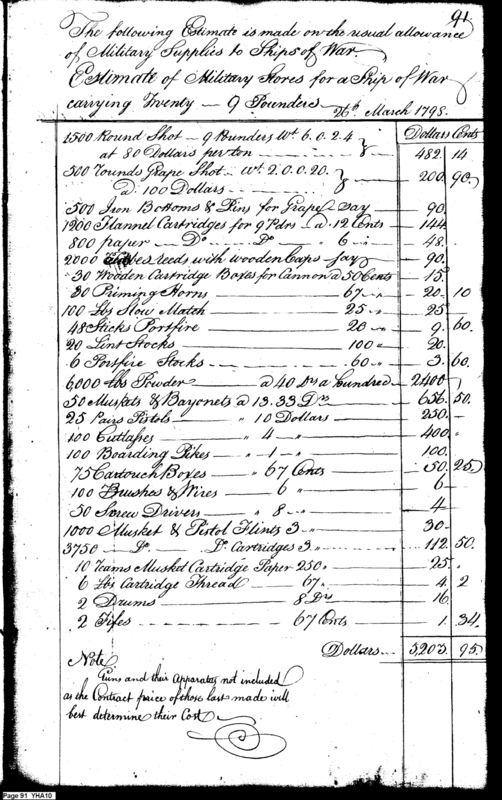 91
The following Estimate is made on the usual allowance
of Military Supplies to Ships of War.
Estimate of Military Stores for a Ship of War
carrying Twenty — 9 Pounders
26th March 1798.
Dollars Cents
1500 Round Shot — 9 Pounders Wt 6.0.2.4
at 80 Dollars per ton 482 14
500 rounds Grape Shot — Wt 2.0.0.20.
a 100 Dollars 200 90
500 Iron Bottoms & Pins for Grape Say 90
1200 Flannel Cartridges for 9 Pdrs a 12 Cents 144
800 paper Do Do " 6 " 48
2000 reeds with wooden Caps Say 90
30 Wooden Cartridge Boxes for Cannon a 50 Cents 15
30 Priming Horns 67 " 20 10
100 lbs Slow Match 25 " 25
48 Sticks Portfire 20 " 9 60
20 Lint Stocks 100 " 20
6 Portfire Stocks 60 " 3 60
6,000 lbs Powder a 40 Drs a hundred 2400
50 Muskets & Bayonets a 13.33 Drs 656 50
25 Pairs Pistols " 10 Dollars 250
100 Cutlasses " 4 " 400
100 Boarding Pikes " 1 " 100
75 Cartouch Boxes " 67 Cents 50 25
100 Brushes & Wires " 6 " 6
50 Screw Drivers " 8 " 4
1000 Musket & Pistol Flints 3 " 30
3750 Do Do Cartridges 3 " 112 50
10 reams Musket Cartridge Paper 250 " 25
6 lbs Cartridge Thread 67 " 4 2
2 Drums 8 Drs 16
2 Fifes 67 Cents 1 34
Dollars 5,203 95
Note
Guns and their Apparatus not included
as the Contract price of those last made will
best determine their Cost
Page 91 YHA10